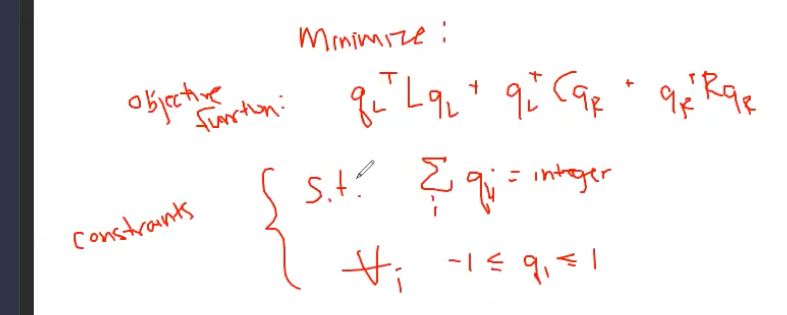 Minimize:
objective function: q_L^T L q_L + q_L^T C q_R + q_R^T R q_R
constraints { s.t. Σ_i q_i = integer
∀_i -1 ≤ q_i ≤ 1